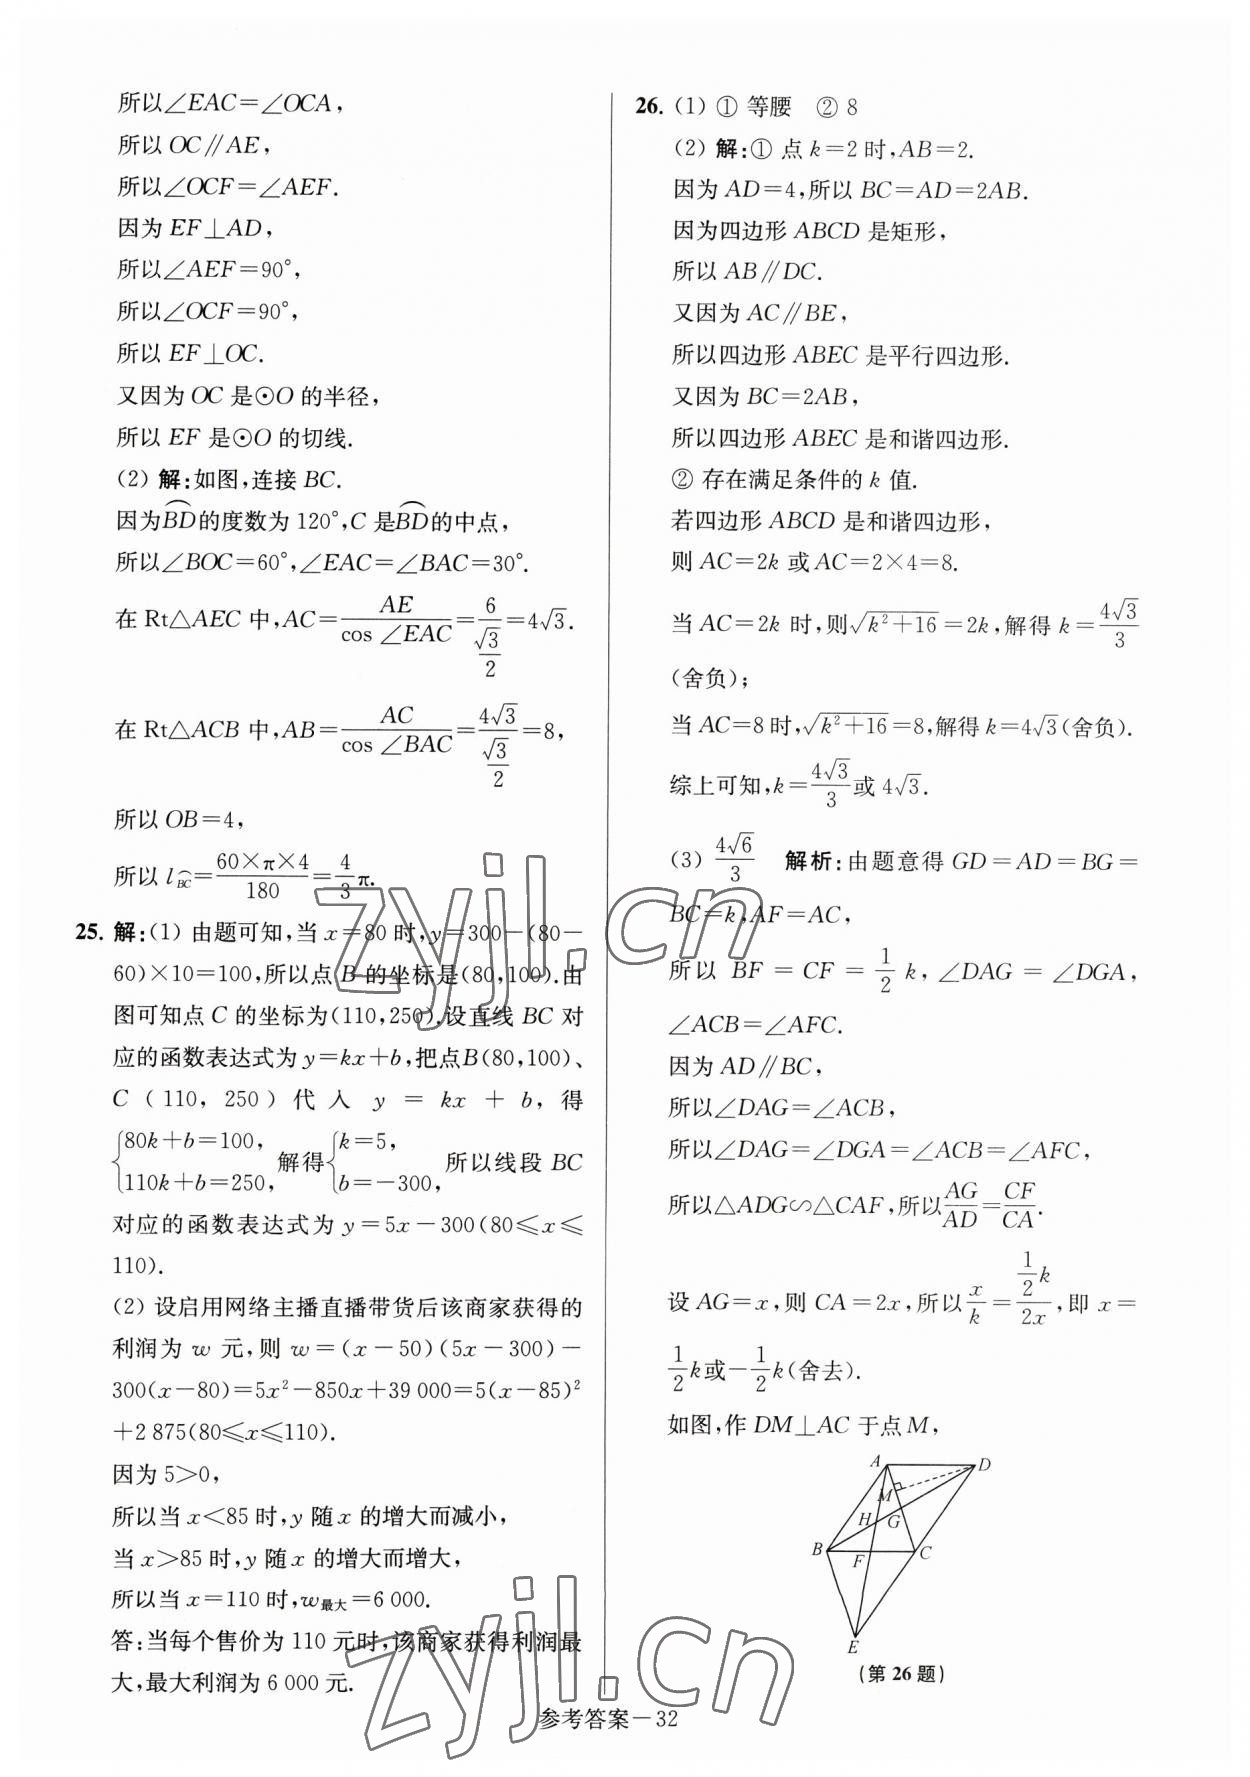 所以∠EAC=∠OCA,
所以 OC∥AE,
所以∠OCF=∠AEF.
因为 EF⊥AD,
所以∠AEF=90°,
所以∠OCF=90°,
所以 EF⊥OC.
又因为 OC 是⊙O 的半径,
所以 EF 是⊙O 的切线.
(2) 解:如图,连接 BC.
因为⌒BD的度数为 120°,C 是⌒BD的中点,
所以∠BOC=60°,∠EAC=∠BAC=30°.
在 Rt△AEC 中,AC=AE/cos∠EAC=6/(√3/2)=4√3.
在 Rt△ACB 中,AB=AC/cos∠BAC=4√3/(√3/2)=8,
所以 OB=4,
所以 l⌒BC=60×π×4/180=4/3π.
25. 解:(1) 由题可知,当 x=80 时,y=300-(80-
60)×10=100,所以点 B 的坐标是(80,100).由
图可知点 C 的坐标为(110,250).设直线 BC 对
应的函数表达式为 y=kx+b,把点B(80,100)、
C(110,250)代入 y=kx+b,得
{80k+b=100, 110k+b=250, 解得{k=5, b=-300, 所以线段 BC
对应的函数表达式为 y=5x-300(80≤x≤
110).
(2) 设启用网络主播直播带货后该商家获得的
利润为 w 元,则 w=(x-50)(5x-300)-
300(x-80)=5x²-850x+39 000=5(x-85)²
+2 875(80≤x≤110).
因为 5>0,
所以当 x<85 时,y 随 x 的增大而减小,
当 x>85 时,y 随 x 的增大而增大,
所以当 x=110 时,w最大=6 000.
答:当每个售价为 110 元时,该商家获得利润最
大,最大利润为 6 000 元.
26. (1) ① 等腰 ② 8
(2) 解:① 点 k=2 时,AB=2.
因为 AD=4,所以 BC=AD=2AB.
因为四边形 ABCD 是矩形,
所以 AB∥DC.
又因为 AC∥BE,
所以四边形 ABEC 是平行四边形.
又因为 BC=2AB,
所以四边形 ABEC 是和谐四边形.
② 存在满足条件的 k 值.
若四边形 ABCD 是和谐四边形,
则 AC=2k 或 AC=2×4=8.
当 AC=2k 时,则√(k²+16)=2k,解得 k=4√3/3
(舍负);
当 AC=8 时,√(k²+16)=8,解得 k=4√3(舍负).
综上可知,k=4√3/3或 4√3.
(3) 4√6/3 解析:由题意得 GD=AD=BG=
BC=k,AF=AC,
所以 BF=CF=1/2 k,∠DAG=∠DGA,
∠ACB=∠AFC.
因为 AD∥BC,
所以∠DAG=∠ACB,
所以∠DAG=∠DGA=∠ACB=∠AFC,
所以△ADG∽△CAF,所以AG/AD=CF/CA.
设 AG=x,则 CA=2x,所以x/k=(1/2 k)/2x,即 x=
1/2 k或-1/2 k(舍去).
如图,作 DM⊥AC 于点 M,
A
D
M
H
G
B
F
C
E
(第 26 题)
参考答案-32
zyjl.cn
zyjl.cn